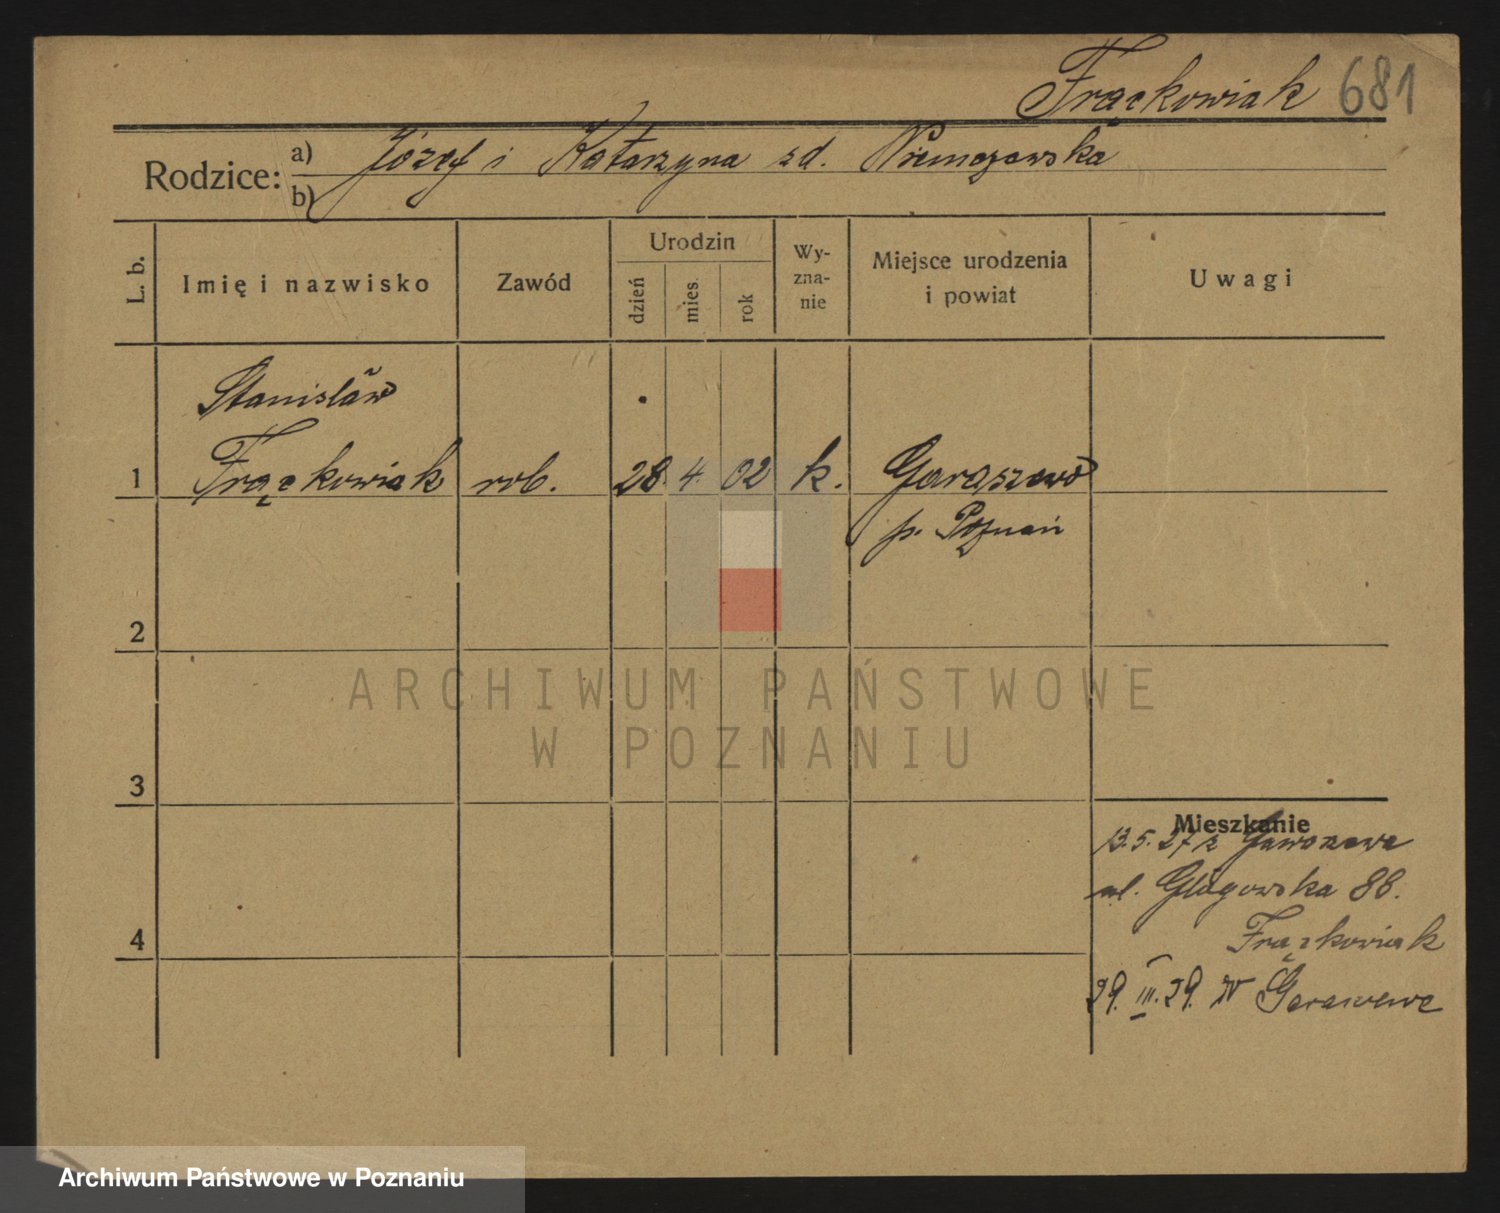 Frąckowiak 681
Rodzice: a) Józef i Katarzyna zd.
b)
L. b.
Imię i nazwisko
Zawód
Urodzin
dzień
mies.
rok
Wy-
zna-
nie
Miejsce urodzenia
i powiat
Uwagi
Stanisław
1 Frąckowiak rob. 28. 4. 02 k. Garaszewo
p. Poznań
2
ARCHIWUM PAŃSTWOWE
W POZNANIU
3
Mieszkanie
13.5.27 z
ul. Głogowska 88.
Frąckowiak
4
29. III. 29.
Archiwum Państwowe w Poznaniu